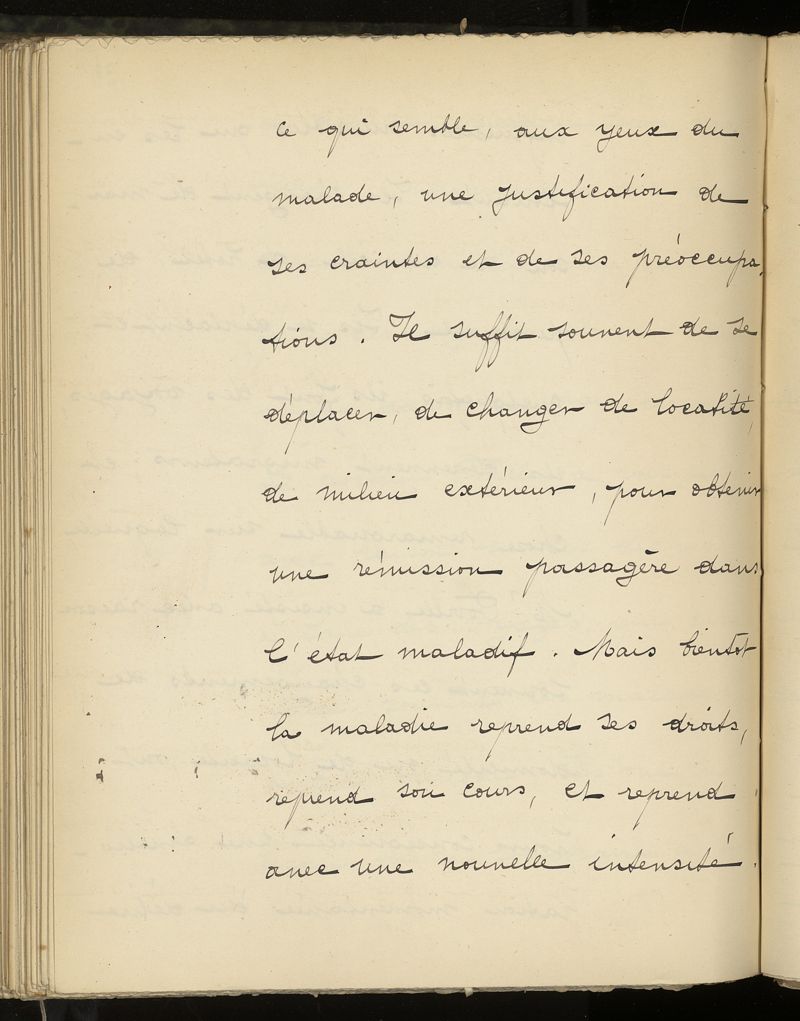 ce qui semble, aux yeux du
malade, une justification de
ses craintes et de ses préoccupa-
tions. Il suffit souvent de se
déplacer, de changer de localité,
de milieu extérieur, pour obtenir
une rémission passagère dans
l'état maladif. Mais bientôt
la maladie reprend ses droits,
reprend son cours, et reprend
avec une nouvelle intensité.